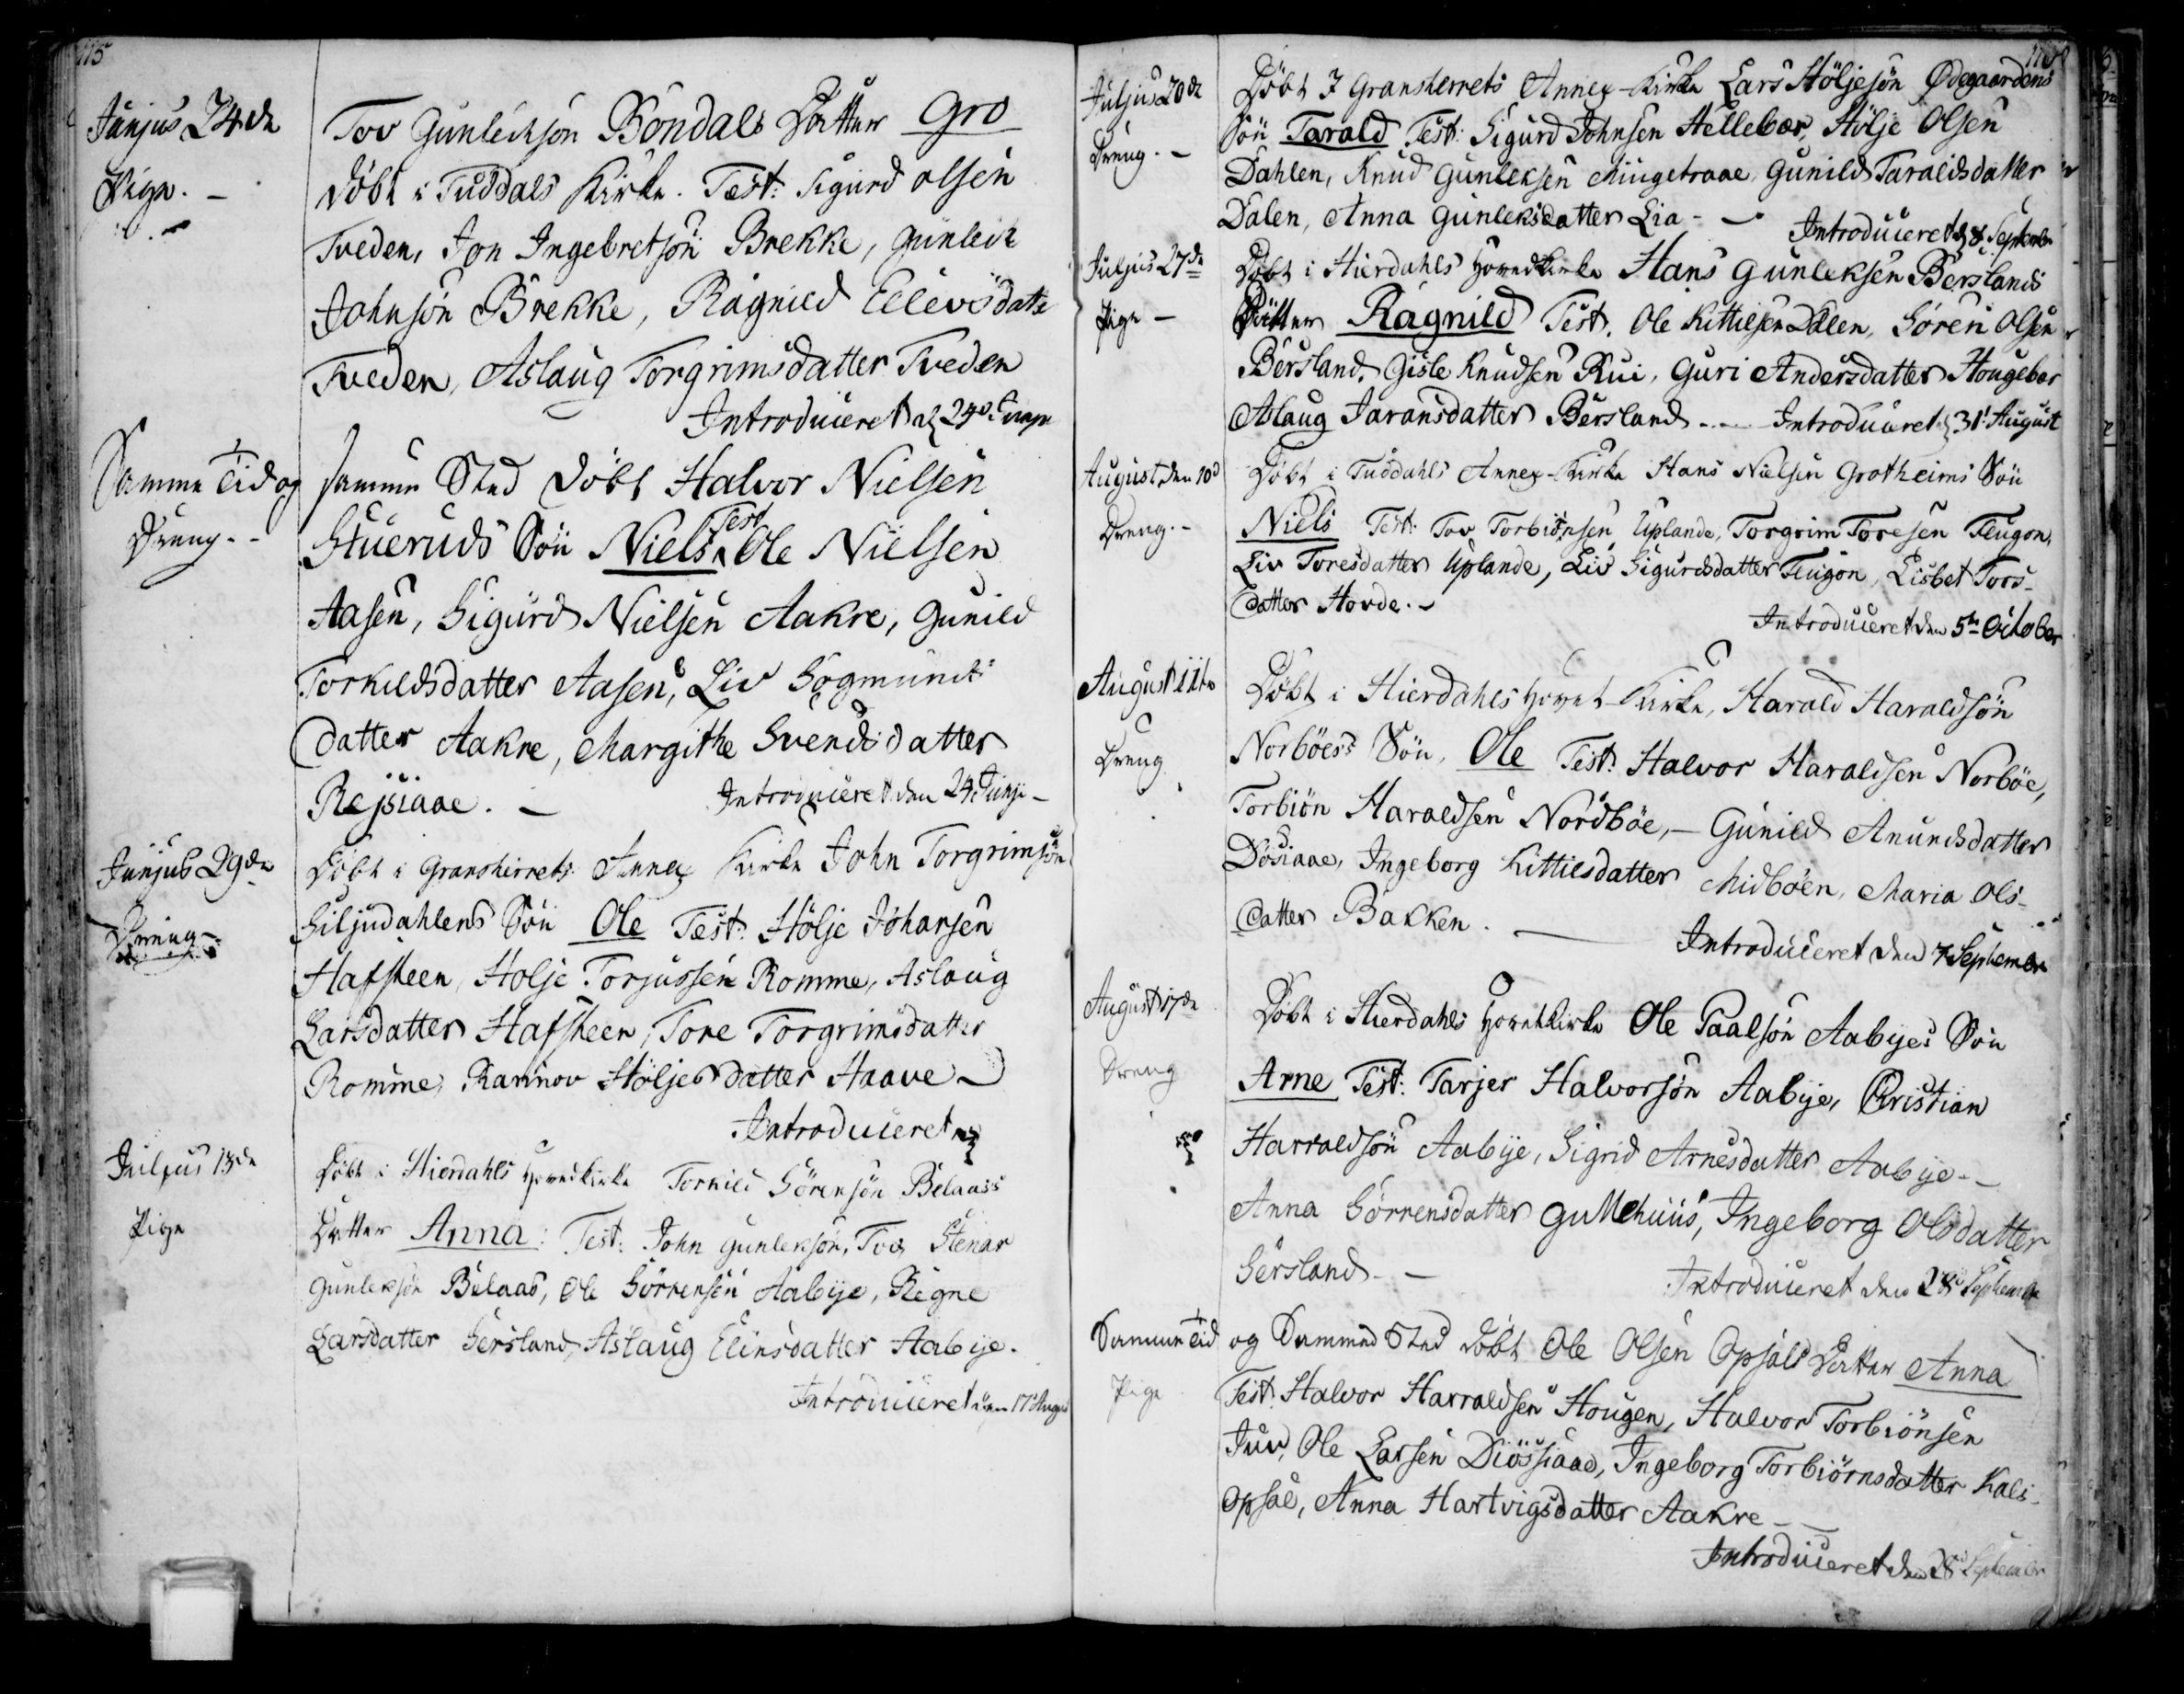 115
Junjus 24de
Pige. -
Tov Gunleiksøn Bondals Datter Gro
Døbt i Tuddals Kirke. Test: Sigurd olsen
Tveden, Jon Ingebretsøn Brekke, Gunleik
Johnsøn Brekke, Ragnild Ellevsdatt
Tveden, Aslaug Torgrimsdatter Tveden
Introduceret 24d Junje
Samme Tid og
Dreng. -
samme Sted Døbt Halvor Nielsen
Stueruds Søn Niels Test Ole Nielsen
Aasen, Sigurd Nielsen Aakre, Gunild
Torkildsdatter Aasen, Liv Sogmunds
datter Aakre, Margithe Svendsdatter
Rejsiaae. -
Introduceret den 24 Junje -
Junjus 29de
Dreng -
Døbt i Gransherrets Annex Kirke John Torgrimsøn
Siljudahlens Søn Ole Test: Hølje Johansen
Hafsteen, Holje Torjussen Romme, Aslaug
Larsdatter Hafsteen, Tore Torgrimsdatter
Romme, Rannov Høljesdatter Haave -
Introduceret
Juljus 13de
Pige
Døbt i Hierdahls Hovedkirke Torkild Sörensøn Belaass
Datter Anna: Test: John Gunleksøn, Tov Stenar
Gunleksøn Belaas, Ole Sørrensen Aabye, Signe
Larsdatter Sersland, Aslaug Elinsdatter Aabye.
Introduceret den 17 Augus
Juljus 20de
Dreng. -
Døbt I Gransherrets Annex-Kirke Lars Höljesøn Ødegaardens
Søn Tarald Test: Sigurd Johnsen Hellebær, Hölje Olsen
Dahlen, Knud Gunleksen Mingetraae, Gunild Taraldsdatter
Dalen, Anna Gunleksdatter Lia - -
Introduceret 8 Septembr
Juljus 27de
Pige -
Døbt i Hierdahls Hovedkirke Hans Gunleksen Berslands
Datter Ragnild Test. Ole Kittilsen Dalen, Sören Olsen
Bersland, Gisle Knudsen Rui, Guri Andersdatter Hougebær
Aslaug Jaransdatter Bersland - - - Introduceret 31 August
August den 10d
Dreng. -
Døbt i Tuddahls Annex-Kirke Hans Nielsen Grotheims Søn
Niels Test: Tov Torbiønsen Uplande, Torgrim Toresen Flugon,
Liv Toresdatter Uplande, Liv Sigurdsdatter Flugon, Lisbet Tors-
datter Hovde. -
Introduceret den 5te October
August 11te
Dreng
Døbt i Hierdahls Hovet Kirke, Harald Haraldsøn
Norbøes Søn, Ole Test: Halvor Haraldsen Norbøe,
Torbiön Haraldsen Nordbøe, - Gunild Anundsdatter
Døsiaae, Ingeborg Kittilsdatter Midbøen, Maria Ols-
datter Bakken. -
Introduceret den 7 September
August 17de
Dreng
Døbt i Hierdahls Hovetkirke Ole Paalsøn Aabyes Søn
Arne Test: Tarjer Halvorsøn Aabye, Christian
Harraldsøn Aabye, Sigrid Arnesdatter Aabye. -
Anna Sørrensdatter Gullehuus, Ingeborg Olsdatter
Sersland. -
Introduceret den 28 September
Samme Tid
Pige
og Sammed Sted døbt Ole Olsen Opsals Datter Anna
Test. Halvor Harraldsen Hougen, Halvor Torbiönsen
Juv, Ole Larsen Diössiaae, Ingeborg Torbiörnsdatter Kals-
opsal, Anna Hartvigsdatter Aakre -
Introduceret den 28 September